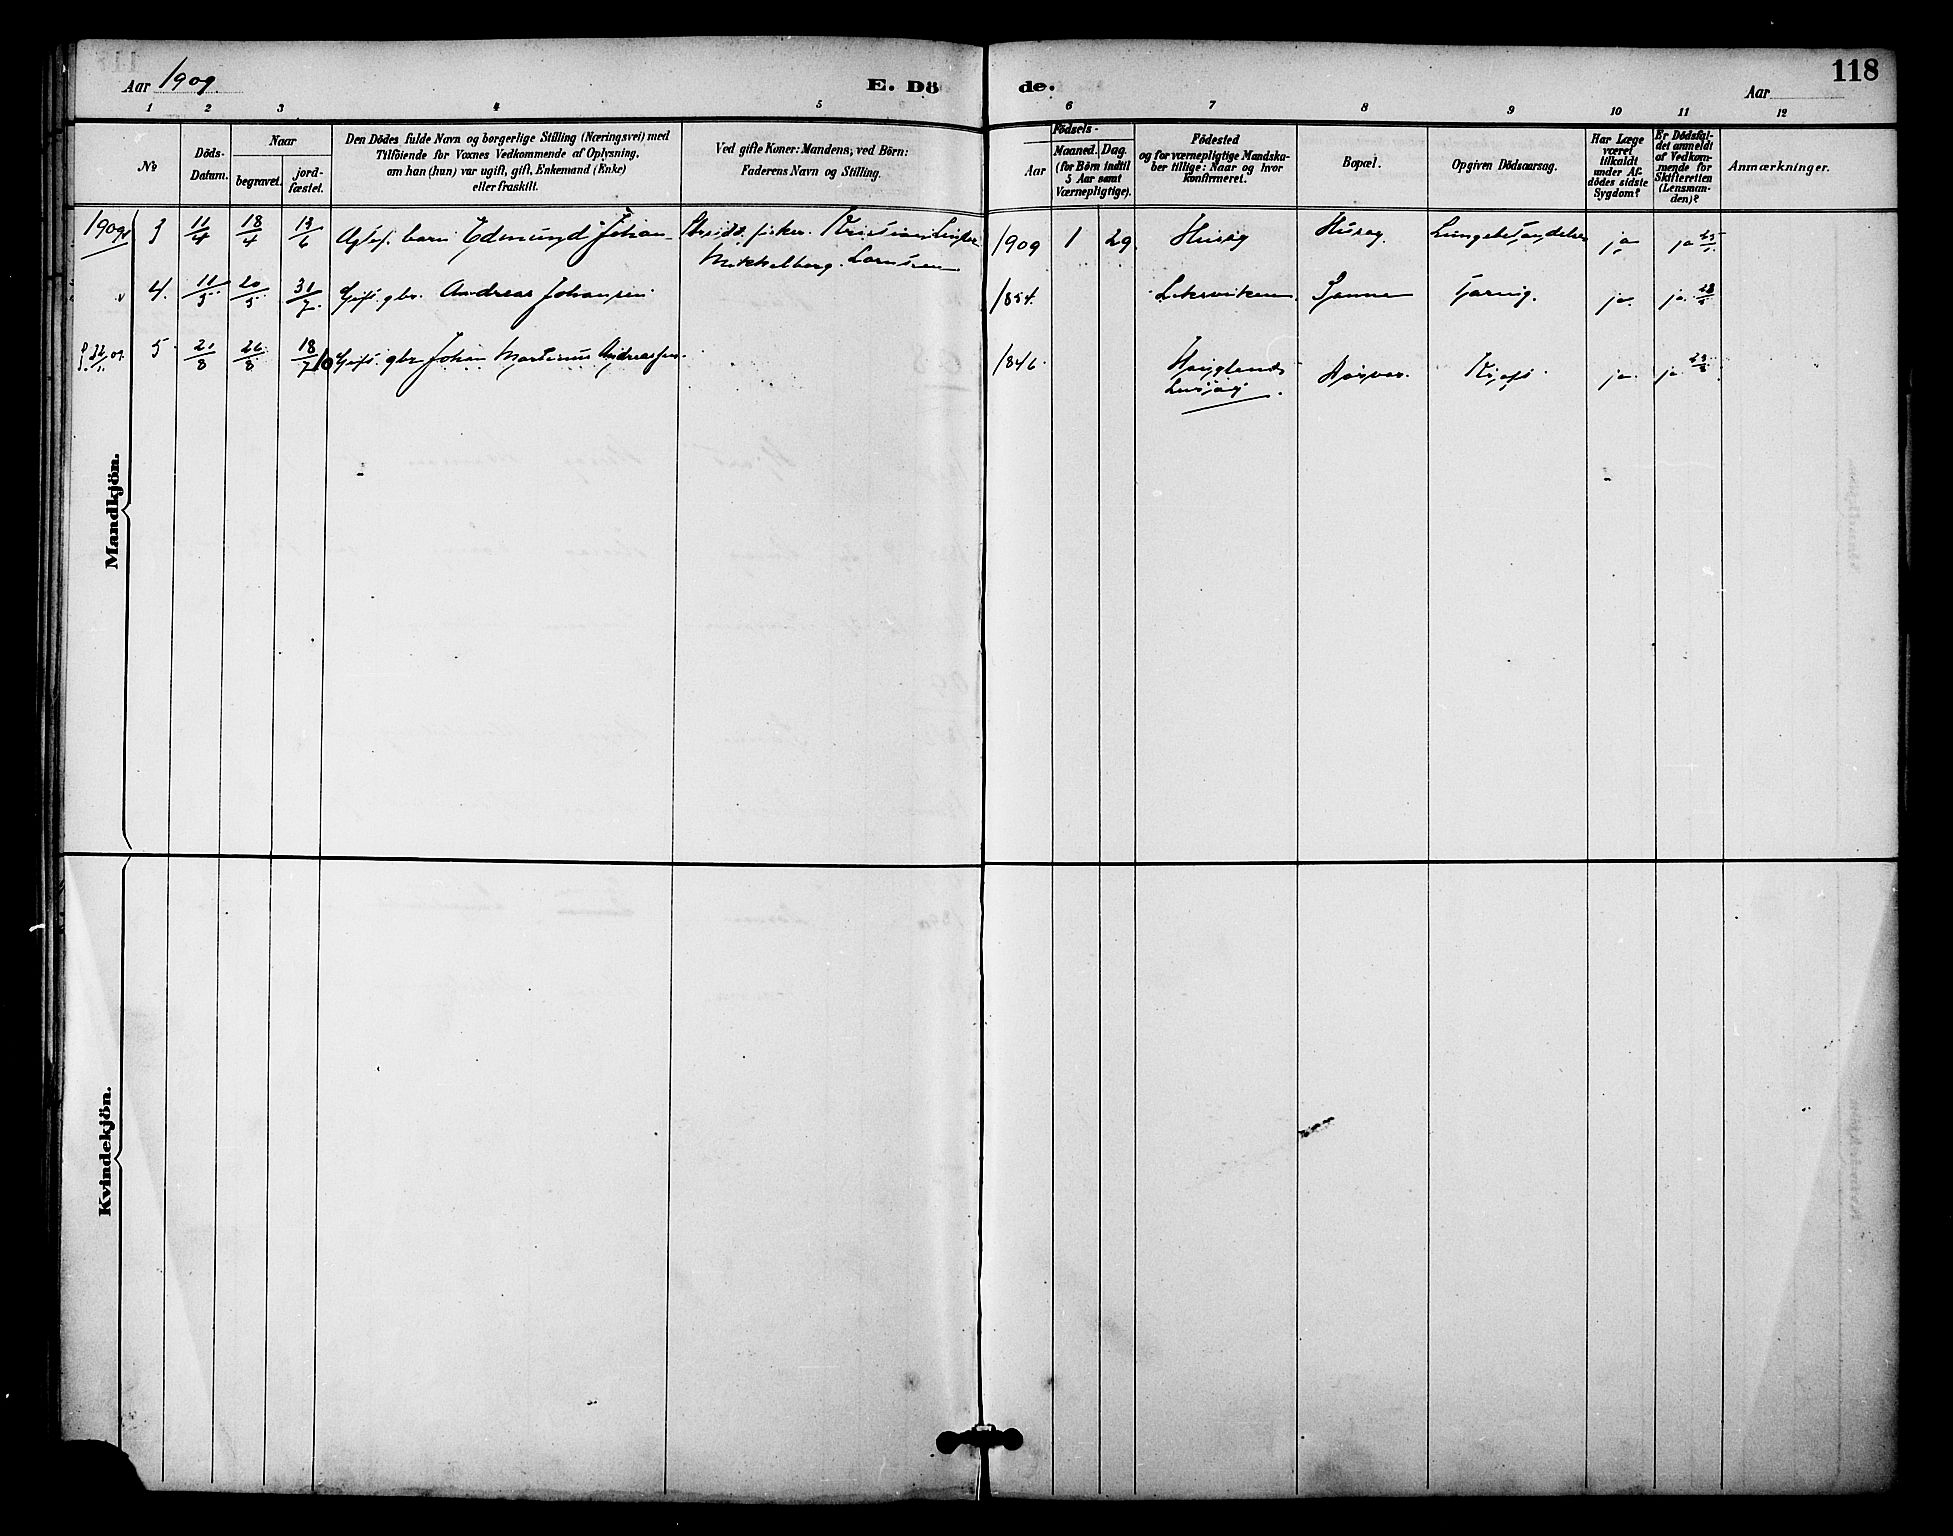 118
Aar 1909.
E. Dö de.
Aar
1 2 3 4 5 6 7 8 9 10 11 12
No
Döds-
Datum.
Naar
begravet.
jord-
fæstet.
Den Dödes fulde Navn og borgerlige Stilling (Næringsvei) med
Tilföiende for Voxnes Vedkommende af Oplysning,
om han (hun) var ugift, gift, Enkemand (Enke)
eller fraskilt.
Ved gifte Koner: Mandens; ved Börn:
Faderens Navn og Stilling.
Födsels-
Aar
Maaned. Dag.
(for Börn indtil
5 Aar samt
Værnepligtige).
Födested
og for værnepligtige Mandska-
ber tillige: Naar og hvor
konfirmeret.
Bopæl.
Opgiven Dödsaarsag.
Har Læge
været
tilkaldt
under Af-
dödes sidste
Sygdom?
Er Dödsfal-
det anmeldt
af Vedkom-
mende for
Skifteretten
(Lensman-
den)?
Anmærkninger.
1909 3 11/4 18/4 13/6 barn Edmund Johan fisker Kristian 1909 1 29. Husøy Husøy Lungebetændelse ja ja
Mikkelborg
4. 11/5 20/5 31/7 Gift gbr. Andreas Johansen 1854. Leksviken ja. ja.
5 21/8 26/8 18/7 10 Gift gbr Johan Martinus Andreassen. 1846. Kræft. ja. ja.
Lurøy
Mandkjön.
Kvindekjön.